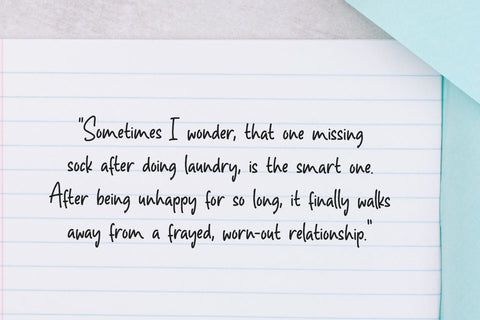 "Sometimes I wonder, that one missing
sock after doing laundry, is the smart one.
After being unhappy for so long, it finally walks
away from a frayed, worn-out relationship."